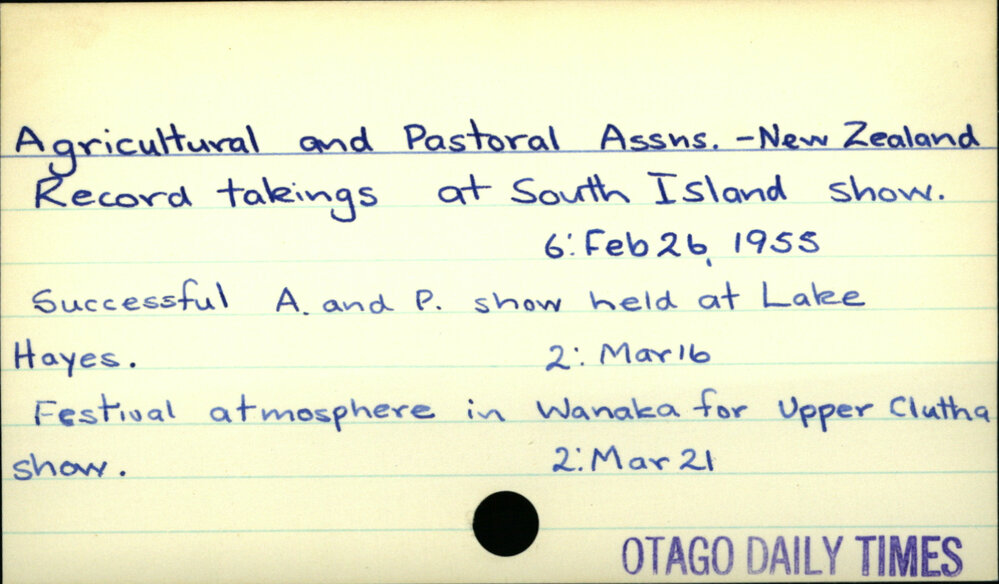 Agricultural and Pastoral Assns. - New Zealand
Record takings at South Island show.
6: Feb 26, 1955
Successful A. and P. show held at Lake
Hayes. 2: Mar 16
Festival atmosphere in Wanaka for Upper Clutha
show. 2: Mar 21
OTAGO DAILY TIMES